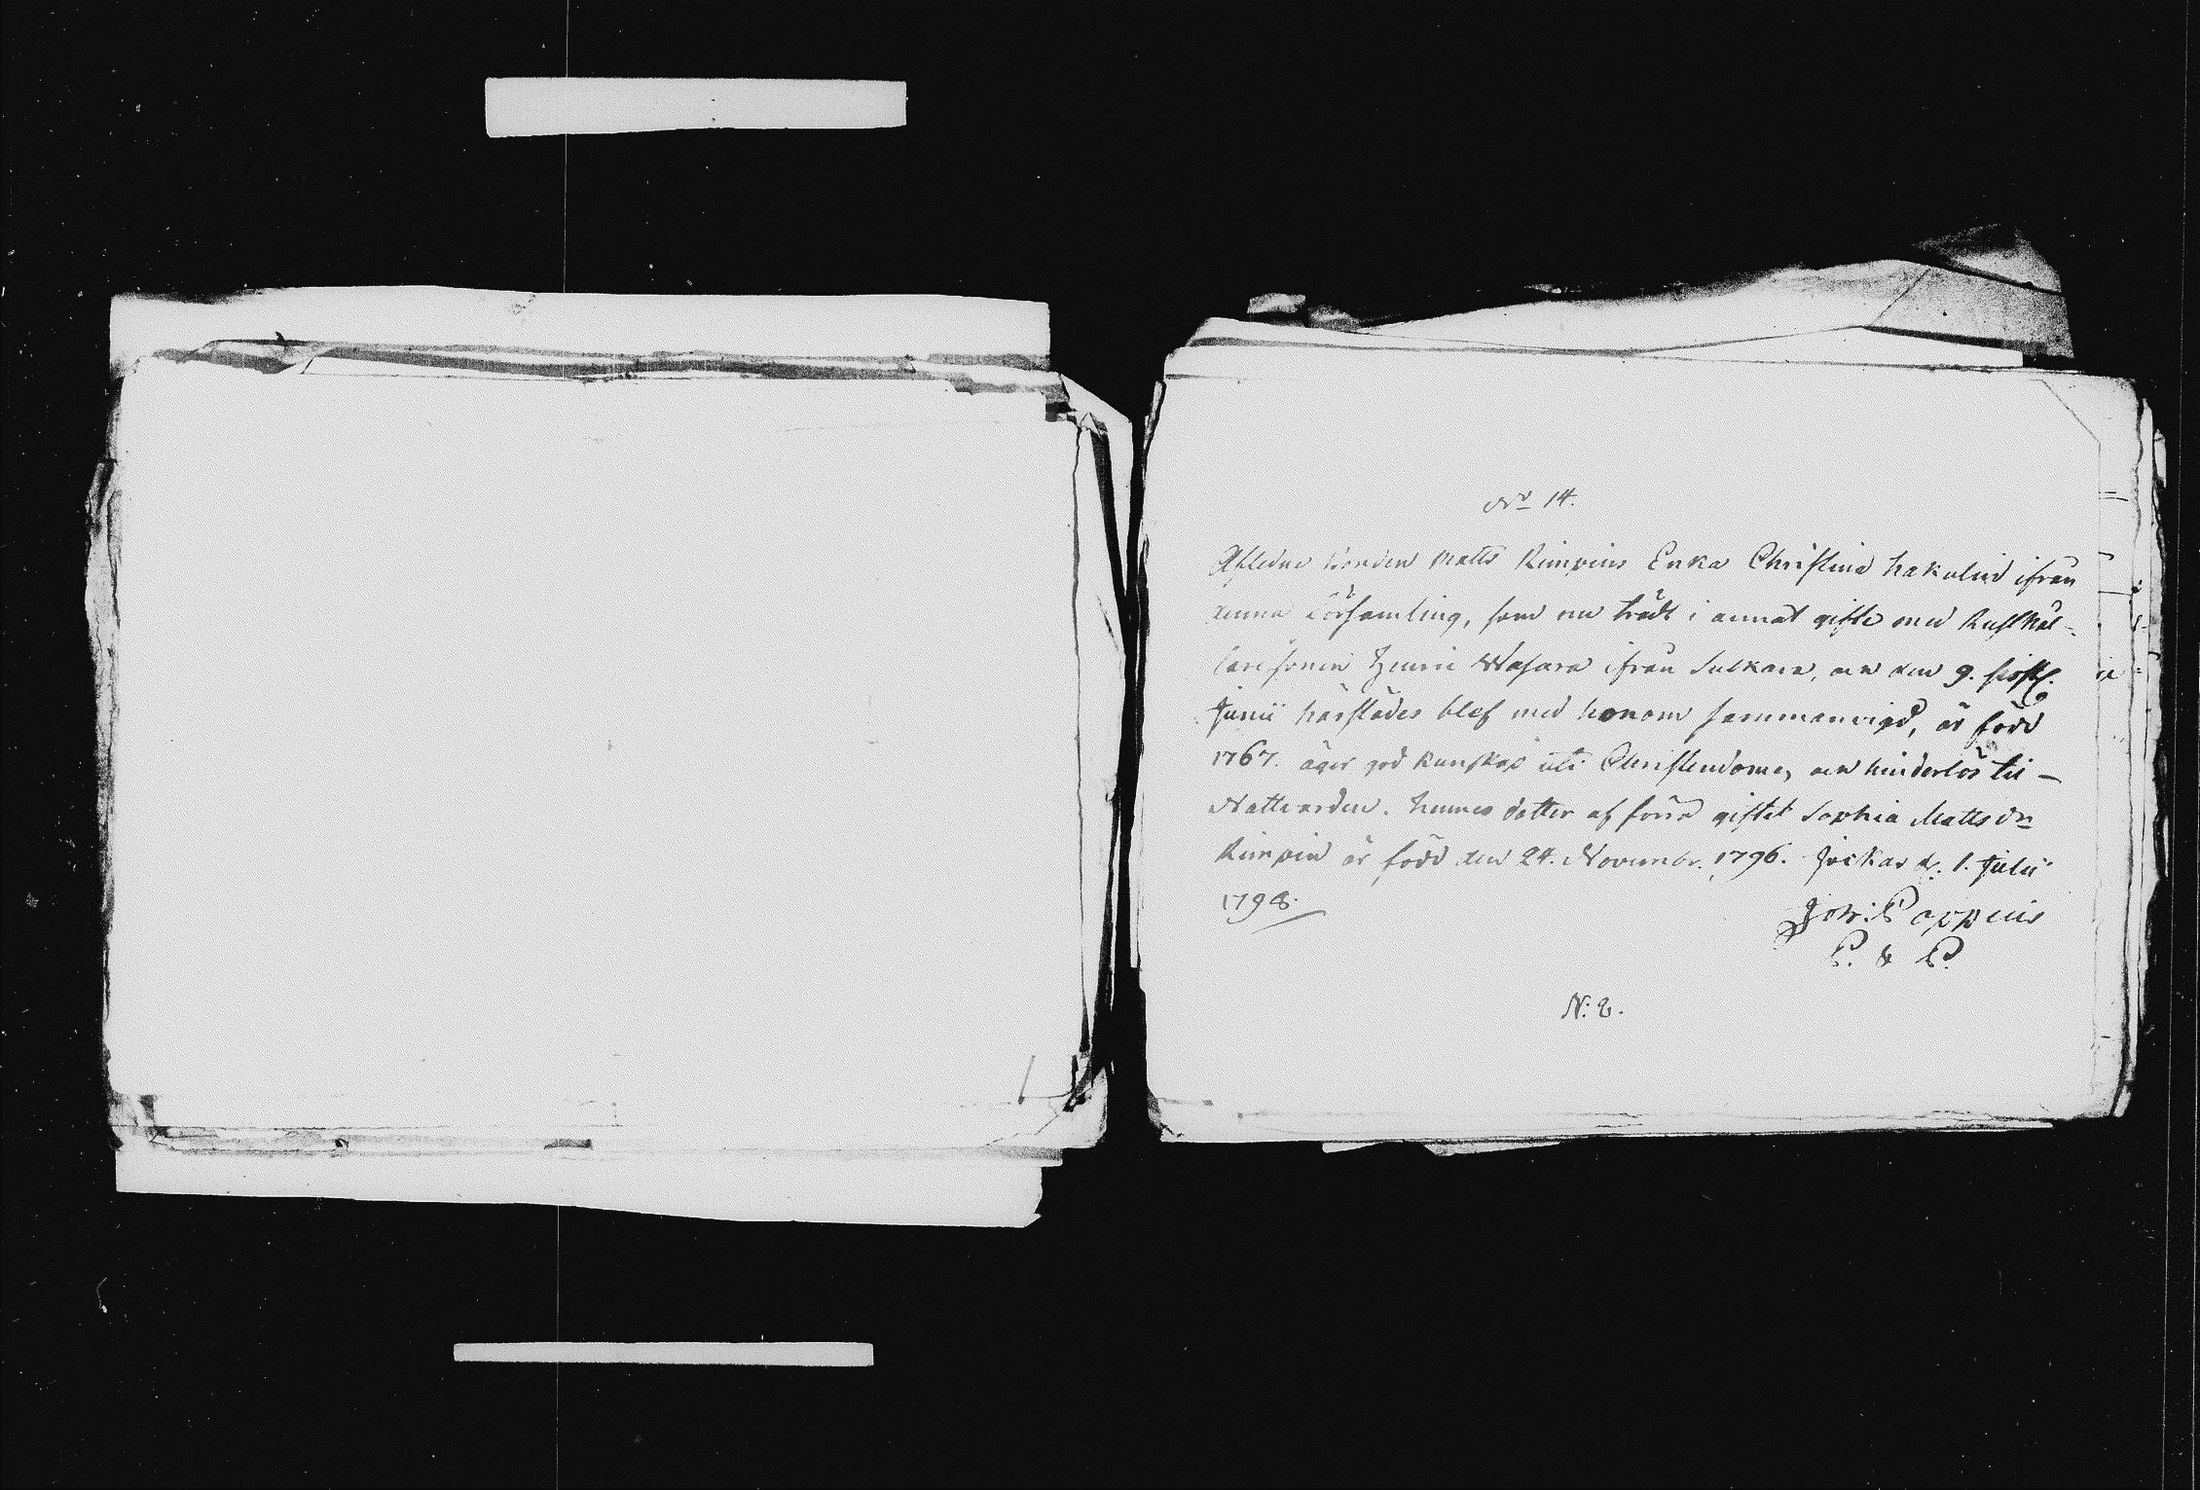 No 14.
Afledne Bonden Matts Kimpins Enka Christina Hakulin ifrån
denna Församling, som nu trädt i annat gifte med Rusthål-
laresonen Henric Wasara ifrån Sulkava, och den 9. sistl.
Junii härstädes blef med honom sammanvigd, är född
1767. äger god kunskap uti Christendomen och hinderlös til
Nattvarden. Hennes dotter af förra giftet Sophia Matts dr
Kimpin är född den 24. Novembr. 1796. Jockas d. 1. Julii
1798.
Joh: Poppius
P. & P.
N: 2.